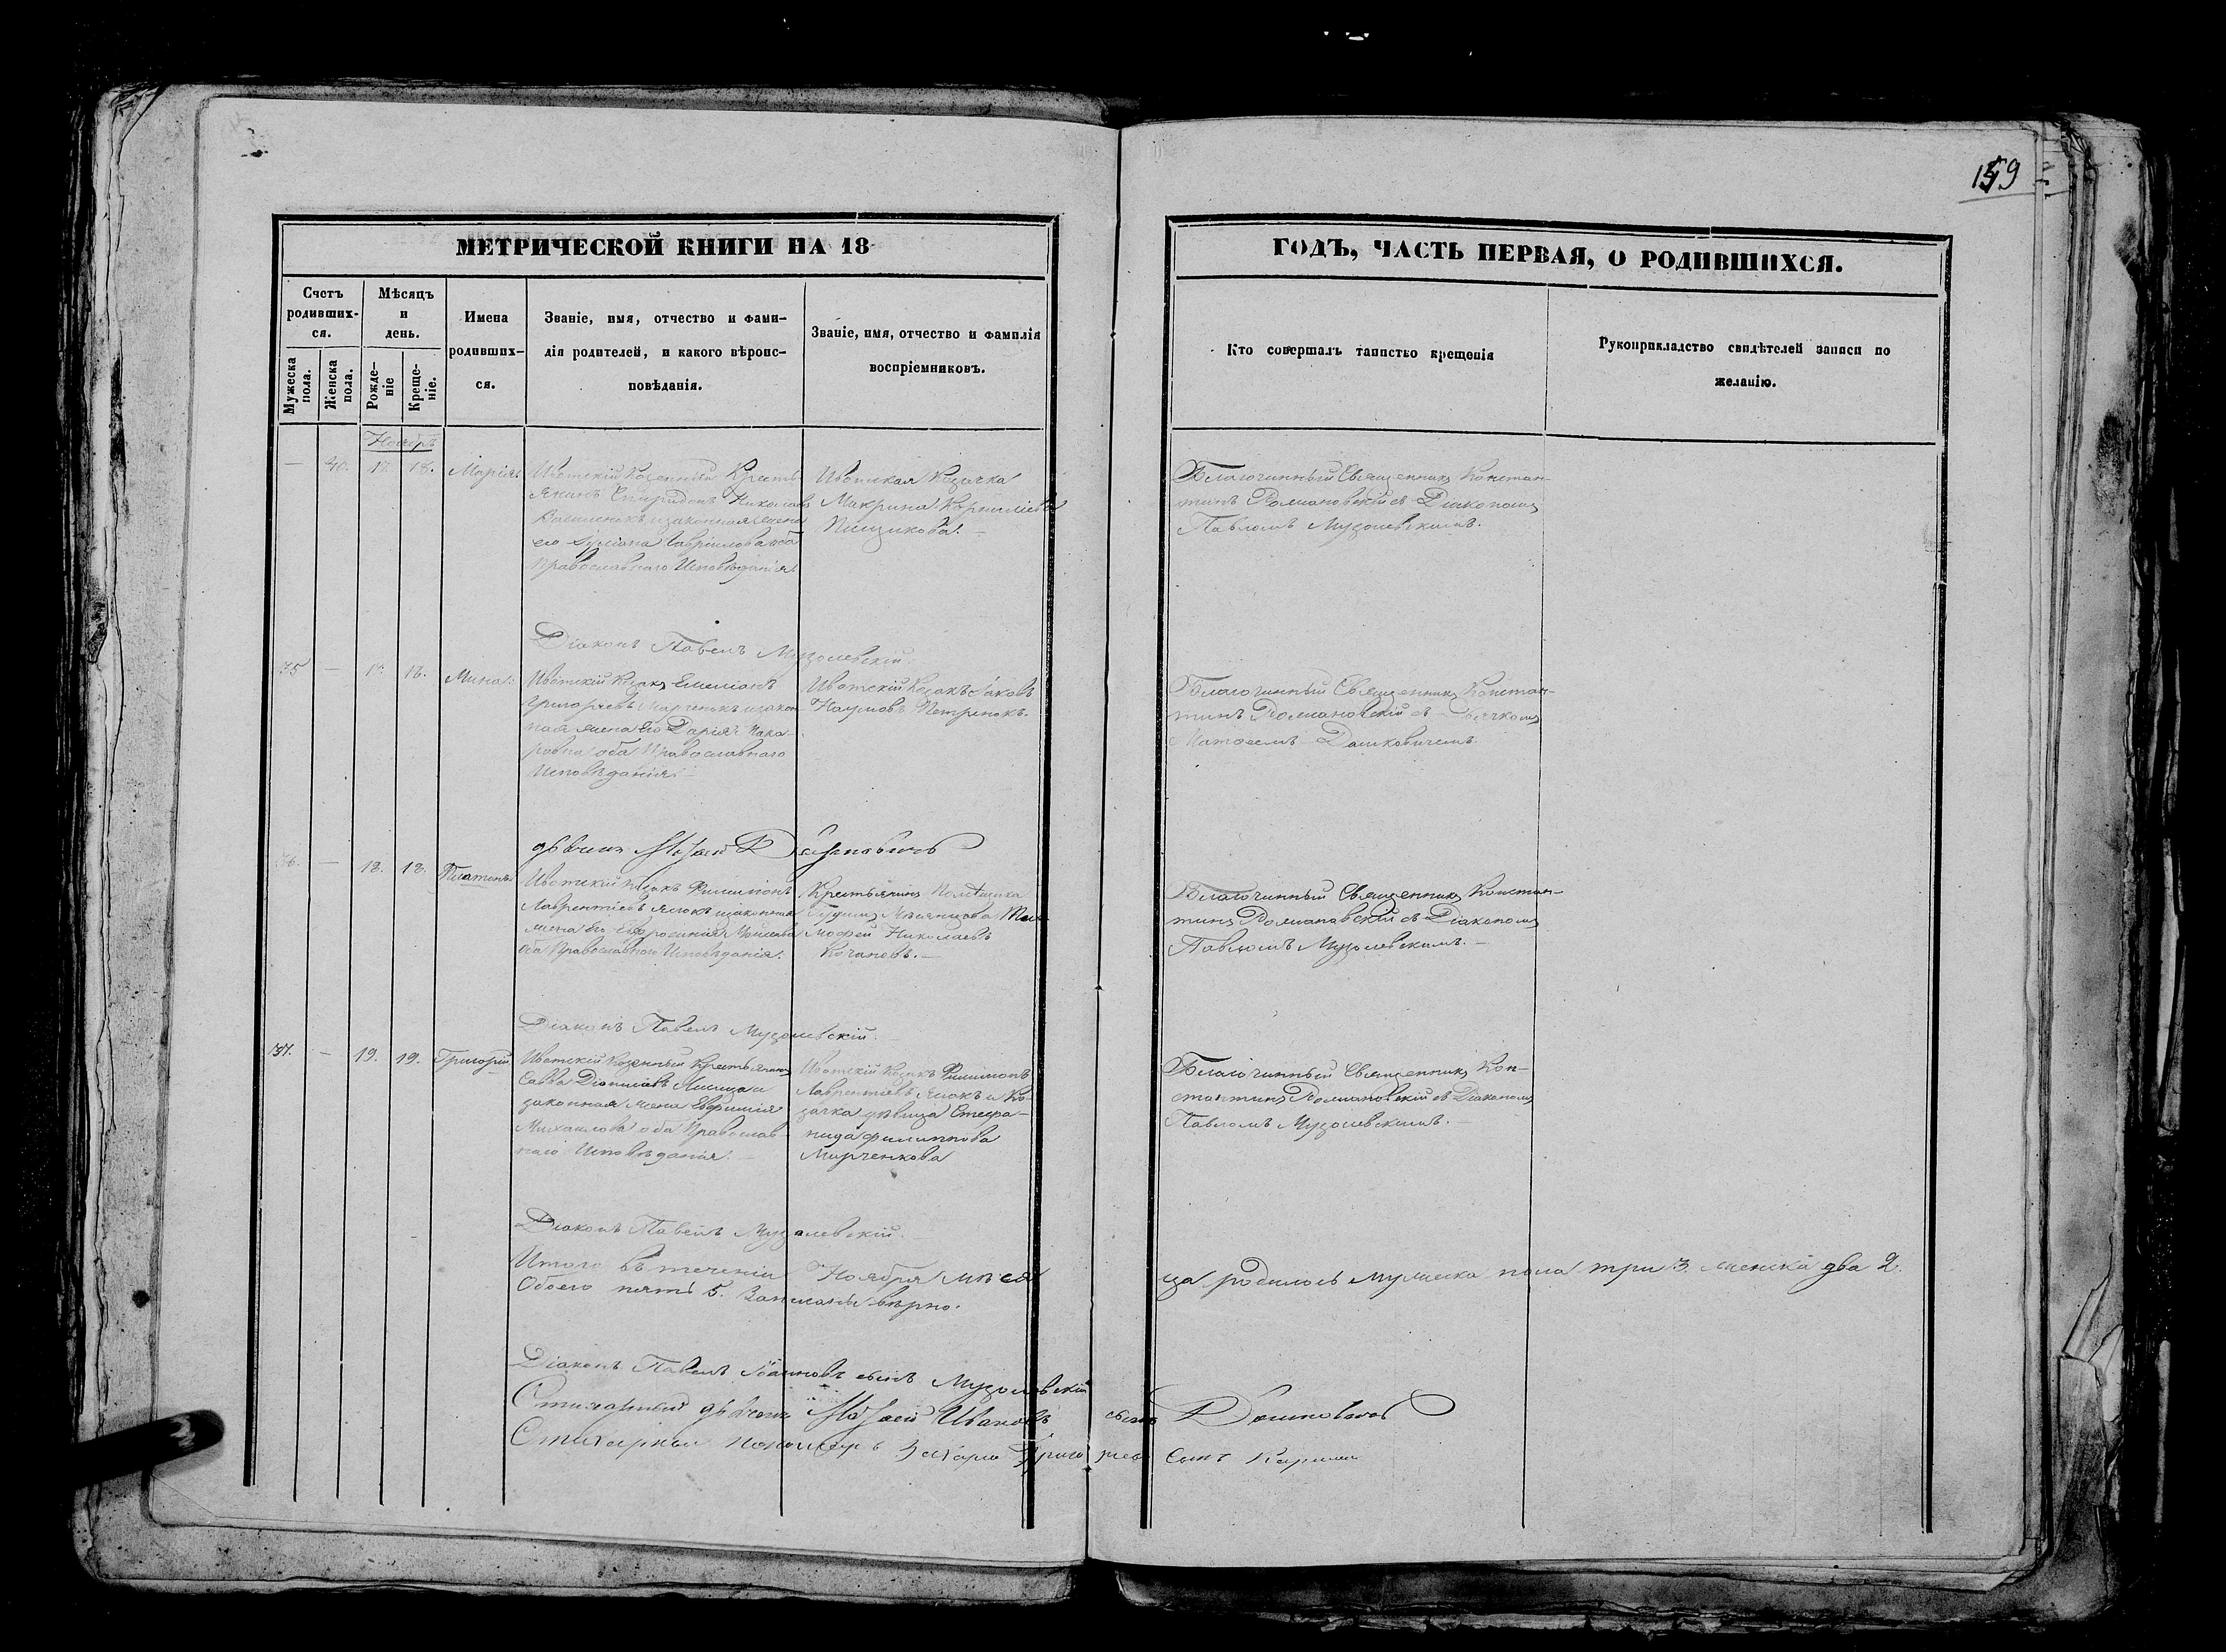 159
МЕТРИЧЕСКОЙ КНИГИ НА 18
ГОДЪ, ЧАСТЬ ПЕРВАЯ, О РОДИВШИХСЯ.
Счетъ родившихся.
Мужеска пола.
Женска пола.
Мѣсяцъ и день.
Рожденіе
Крещеніе.
Имена
родивших-
ся.
Званіе, имя, отчество и фами-
лія родителей, и какого вѣроис-
повѣданія.
Званіе, имя, отчество и фамилія
воспріемниковъ.
Кто совершалъ таинство крещенія
Рукоприкладство свидѣтелей записи по
желанію.
Ноябръ
— 40. 17. 18. Марія.
Ивотскій Козенный Кресть-
янинъ Спиридонъ Николаевъ
законная жена
его Гавріилова оба
Православнаго Исповѣданія.
Ивотская Козачка
Макрина Корниліева
Пищикова. —
Благочинный Священникъ Констан-
тинъ Романовскій съ Діакономъ
Павломъ Музолевскимъ. —
Діаконъ Павелъ Музолевскій.
35 — 17. 18. Мина.
Ивотскій Козакъ Емеліанъ
Григорьевъ Марченокъ и закон-
ная жена его Дарія
оба Православнаго
Исповѣданія. —
Ивотскій Козакъ Іаковъ
Наумовъ Петренокъ.
Благочинный Священникъ Констан-
тинъ Романовскій съ Дьячкомъ
Матоеемъ Дашковичемъ.
36. — 18. 18. Платонъ.
Ивотскій Козакъ Филимонъ
Лаврентіевъ и законная
жена его Ефросинія
оба Православнаго Исповѣданія.
Крестьянинъ Помѣщика
Николаевъ
Кочановъ. —
Благочинный Священникъ Констан-
тинъ Романовскій съ Діакономъ
Павломъ Музолевскимъ. —
Діаконъ Павелъ Музолевскій.
37. — 19. 19. Григорій
Ивотскій Козенный Крестьянинъ
Савва Діонисіевъ Лисица и
законная жена Евфимія
Михаилова оба Православ-
наго Исповѣданія. —
Ивотскій Козакъ Филимонъ
Лаврентіевъ и Ко-
зачка дѣвица Стефа-
нида Филиппова
Марченкова
Благочинный Священникъ Кон-
стантинъ Романовскій съ Діакономъ
Павломъ Музолевскимъ. —
Діаконъ Павелъ Музолевскій.
Итого въ теченіи Ноября мѣся
ца родилось мужеска пола три 3. женска два 2.
Обоего пять 5. Записаны вѣрно.
Діаконъ Павелъ Іоанновъ сынъ Музолевскій
Стихарный дьячекъ Ивановъ сынъ Дашковичъ
Стихарный пономарь Захарія Григорьевъ Сынъ